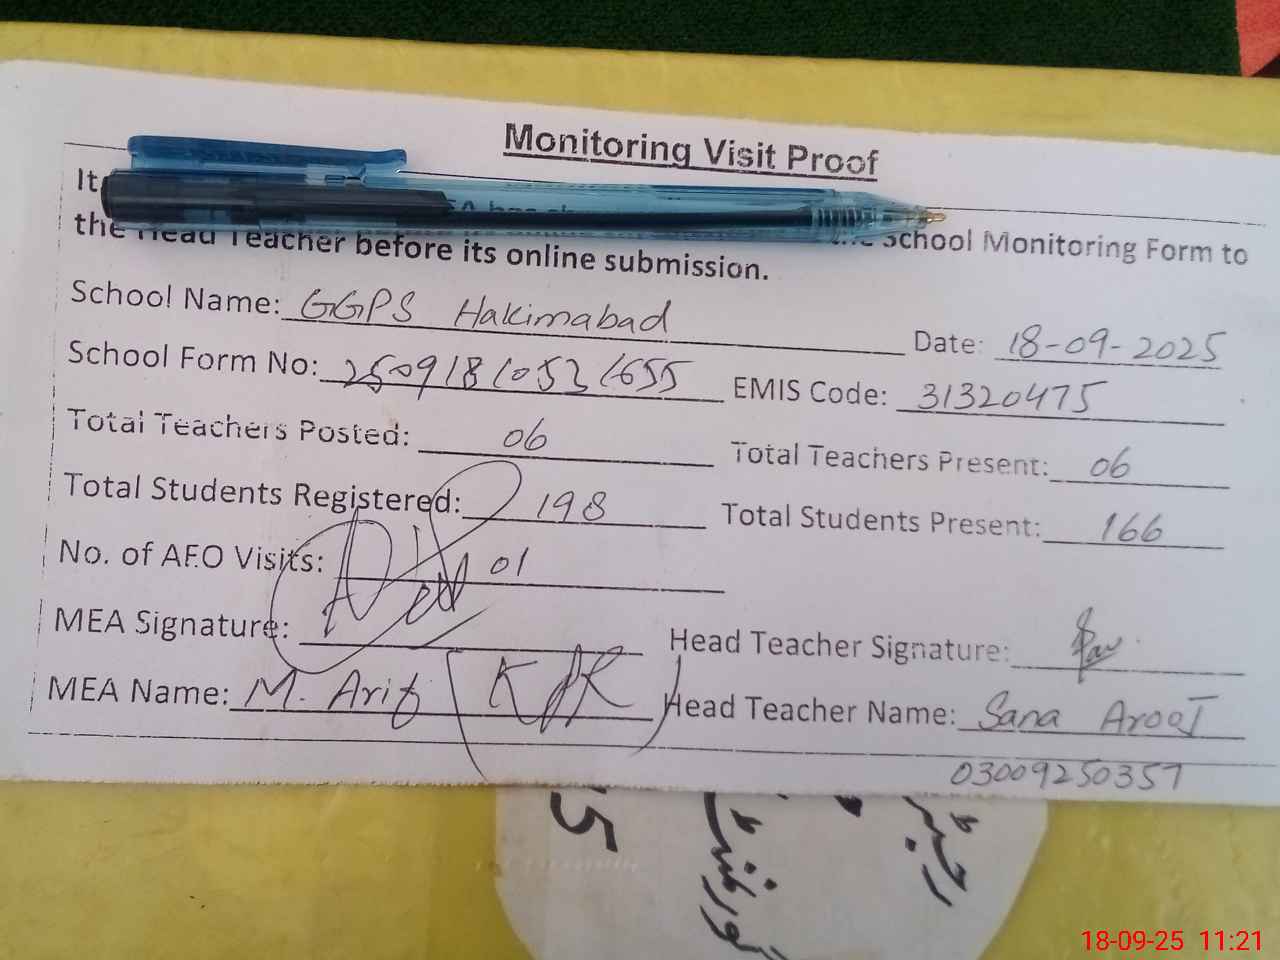 Monitoring Visit Proof
It
the Head Teacher before its online submission. the School Monitoring Form to
School Name: GGPS Hakimabad Date: 18-09-2025
School Form No: 250918105321655 EMIS Code: 31320475
Total Teachers Posted: 06 Total Teachers Present: 06
Total Students Registered: 198 Total Students Present: 166
No. of AEO Visits: 01
MEA Signature: Head Teacher Signature:
MEA Name: M. Arif (KPR) Head Teacher Name: Sana Arooj
03009250357
5
18-09-25 11:21